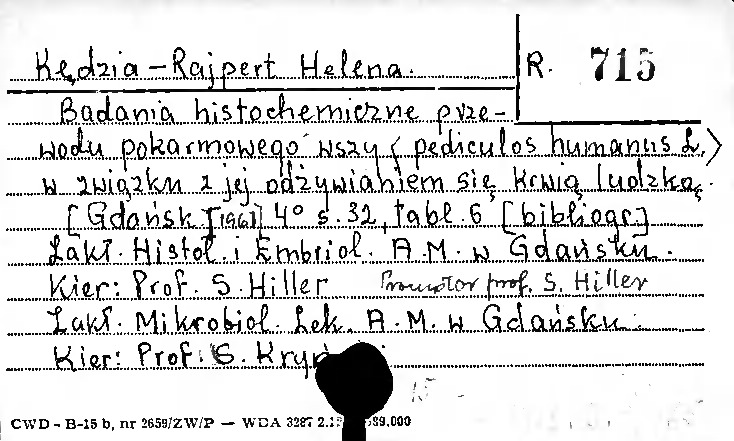 Kędzia-Rajpert Helena.
R. 715
Badania histochemiczne prze-
wodu pokarmowego wszy (pediculos humanus L.)
w związku z jej odżywianiem się krwią ludzką.
[Gdańsk][1961] 4° s. 32, tabl. 6 [bibliogr.]
Zakł. Histol. i Embriol. A.M. w Gdańsku.
Kier: Prof. S. Hiller Promotor prof. S. Hiller
Zakł. Mikrobiol. Lek. A.M. w Gdańsku.
Kier: Prof.
CWD - B-15 b, nr 2659/ZW/P — WDA 3287